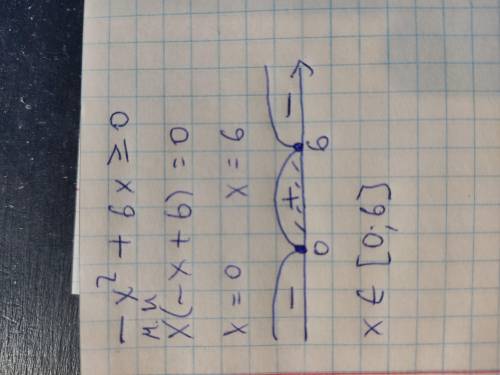 -x² + 6x ≥ 0
м.и
x(-x+6) = 0
x = 0 x = 6
- + -
0 6
x ∈ [0;6]